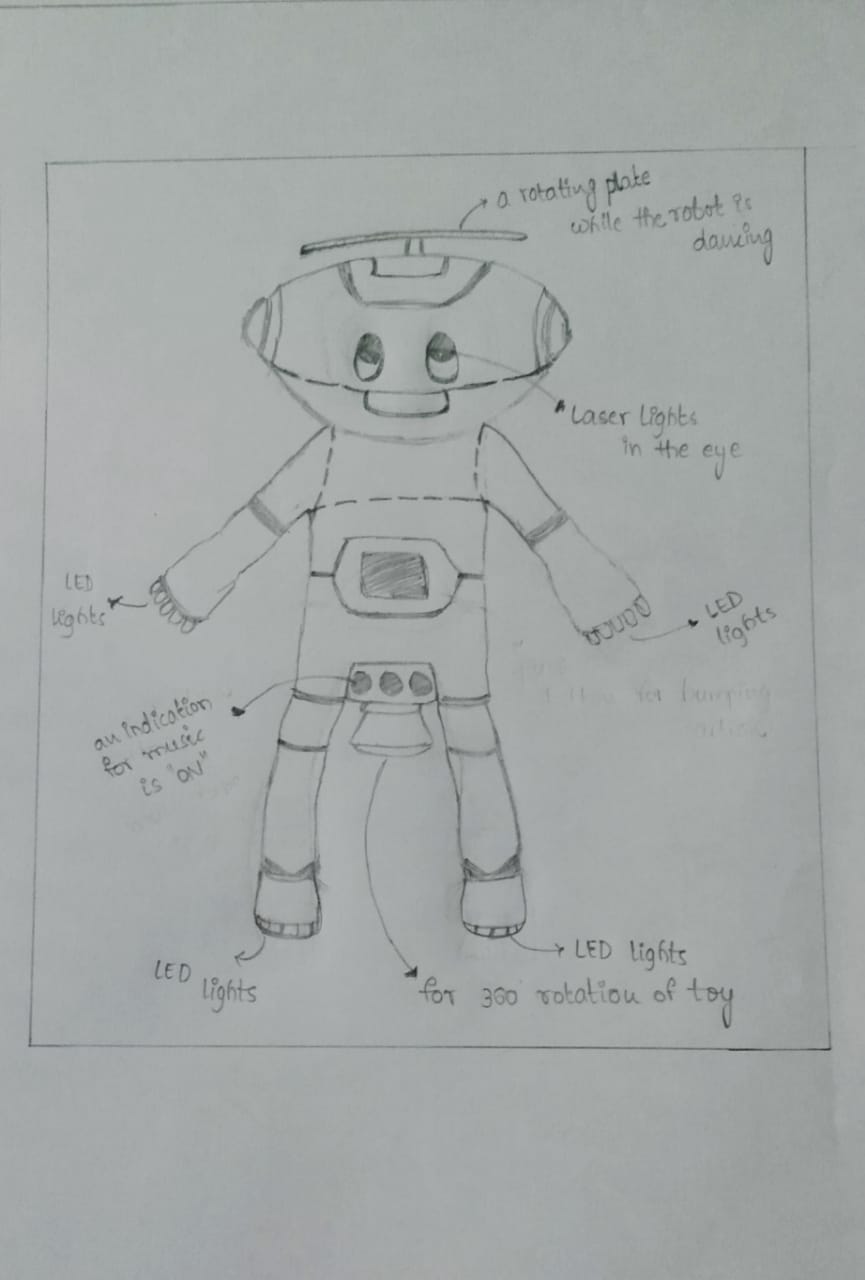 a rotating plate
while the robot is
dancing
Laser Lights
in the eye
LED
lights
LED
lights
for bumping
an indication
for music
is "ON"
LED
lights
LED lights
for 360 rotation of toy